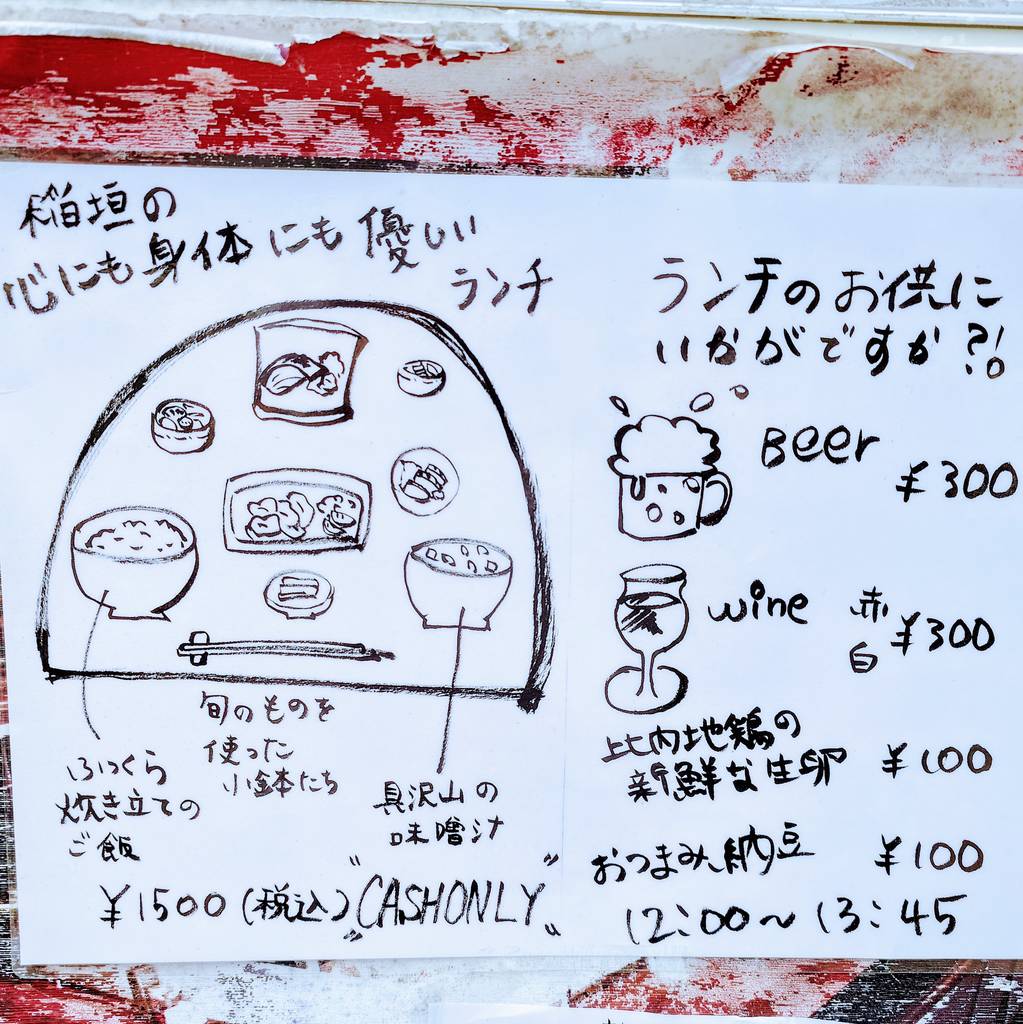 稲垣の
心にも身体にも優しい
ランチ
旬のものを
使った
小鉢たち
ふっくら
炊き立ての
ご飯
具沢山の
味噌汁
¥1500(税込)"CASHONLY"
ランチのお供に
いかがですか?!
Beer ¥300
wine 赤 白 ¥300
比内地鶏の
新鮮な生卵 ¥100
おつまみ納豆 ¥100
12:00~13:45